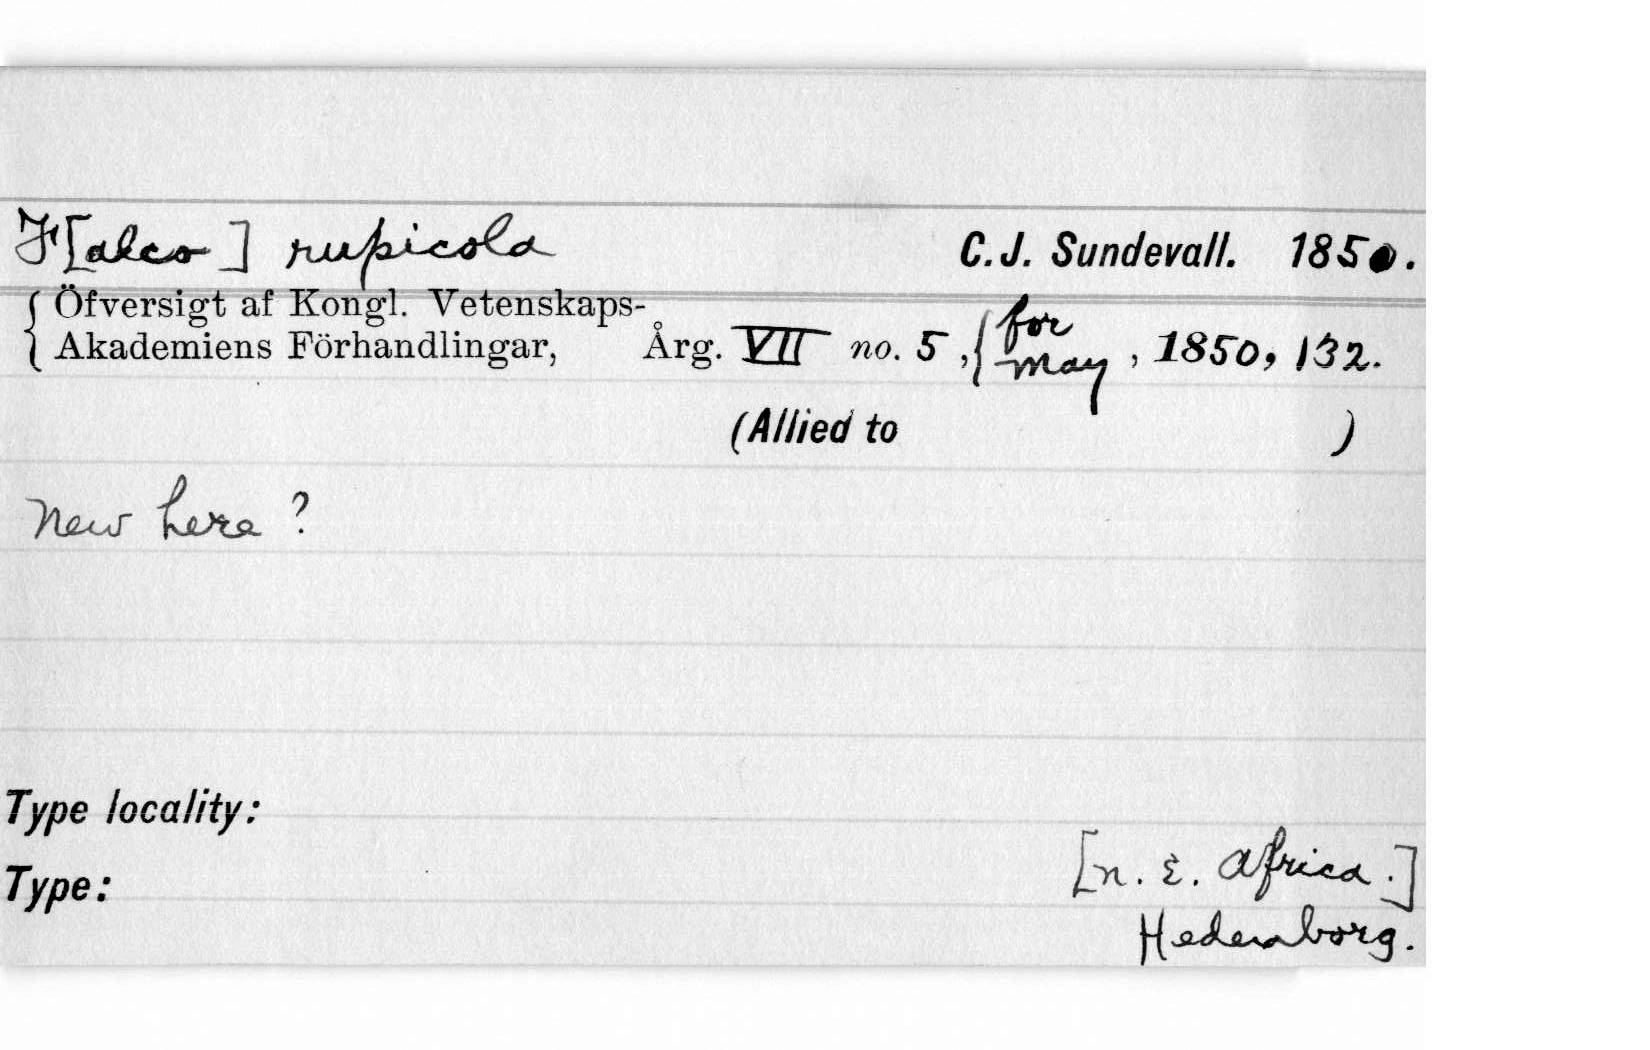 F[alco] rupicola C. J. Sundevall. 1850.
{ Öfversigt af Kongl. Vetenskaps-
Akademiens Förhandlingar, Årg. VII no. 5, { for May, 1850, 132.
(Allied to )
New here?
Type locality:
[n. E. Africa.]
Type:
Hedenborg.